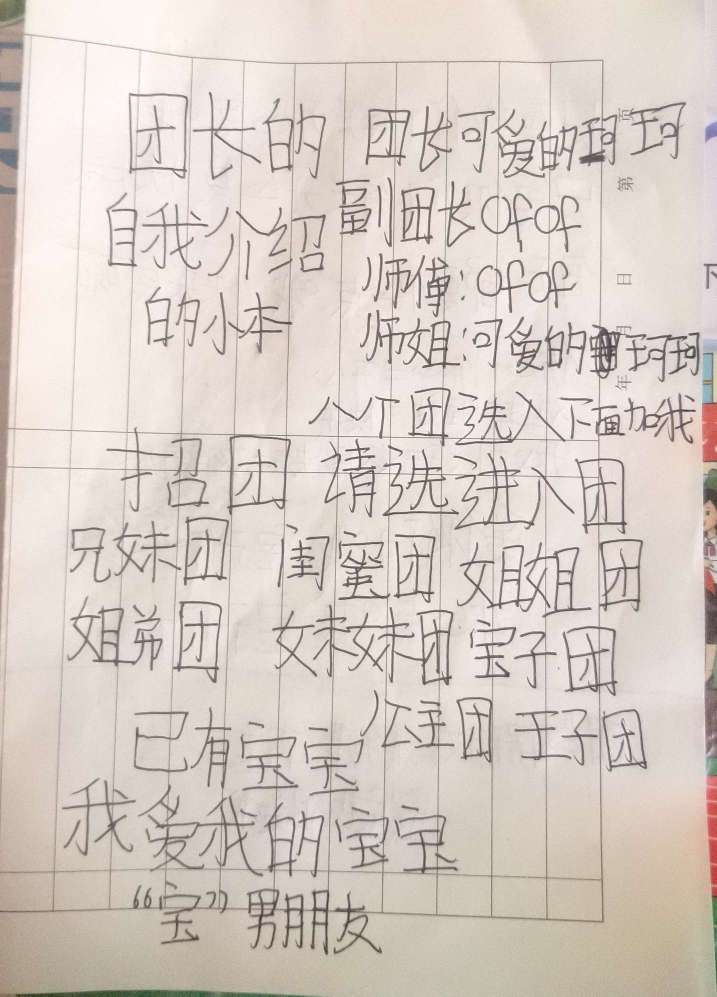 团长的
自我介绍
的小本
团长可爱的珂珂
副团长 OfOf
师傅:OfOf
师姐:可爱的珂珂
八个团选入下面加我
招团 请选进入团
兄妹团 闺蜜团 姐姐团
姐弟团 妹妹团 宝子团
公主团 王子团
已有宝宝
我爱我的宝宝
“宝”男朋友
第 页
年 月 日